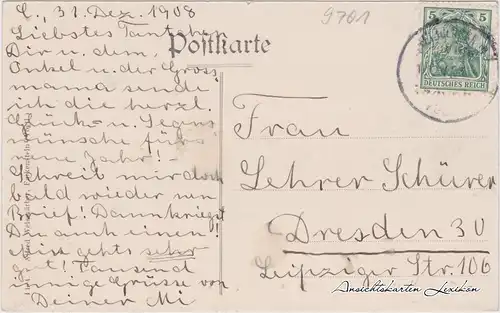 C., 31. Dez. 1908
Liebstes Tantchen
Dir u. dem
Onkel u. der Gross
mama sende
ich die herzl.
Glück- u. Segens
wünsche fürs
neue Jahr! -
Schreib mir doch
bald wieder nen
Brief! Dann kriegst
Du auch einen!
Mir gehts sehr
gut! Tausend
innige Grüsse von
Deiner Mi
Postkarte
9701
5 5
DEUTSCHES REICH
Frau
Lehrer Schürer
Dresden 30
Leipziger Str. 106
Ansichtskarten Lexikon